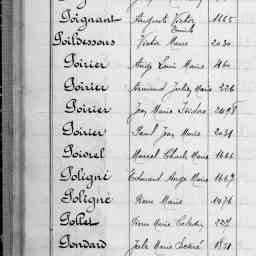 Poignant Auguste Victor 1165
Emile
Poildessous Victor Marie 2030
Poirier Ange Louis Marie 460
Poirier Armand Jules Marie 226
Poirier Jean Marie Isidore
Poirier Paul Jean Marie 2034
Poisrel Marcel Charles Marie 1666
Poligné Edouard Ange Marie 1667
Poligné Pierre Marie 1076
Pollet Pierre Marie Célestin 227
Pondard Jules Marie